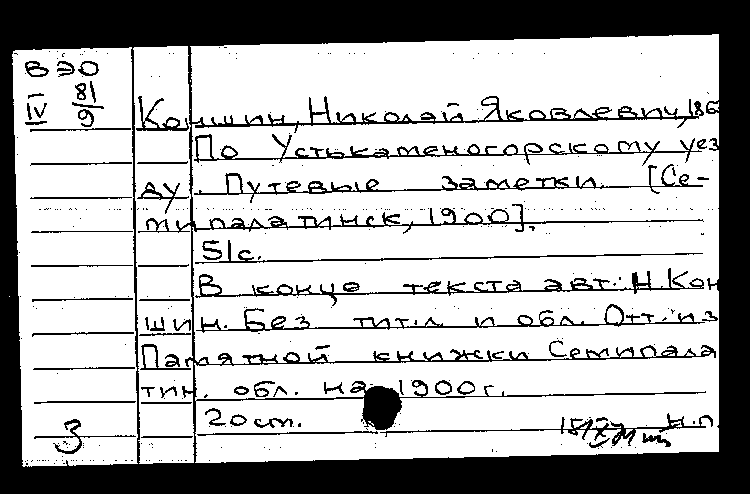 ВЭО
IV 81/9
Коншин, Николай Яковлевич, 186
По Устькаменогорскому уез
ду. Путевые заметки. [Се-
типалатинск, 1900].
51с.
В конце текста авт.: Н. Кон
шин. Без тит.л и обл. Отт. из
Памятной книжки Семипала
тин. обл. на 1900г.
20ст.
Н.П.
3